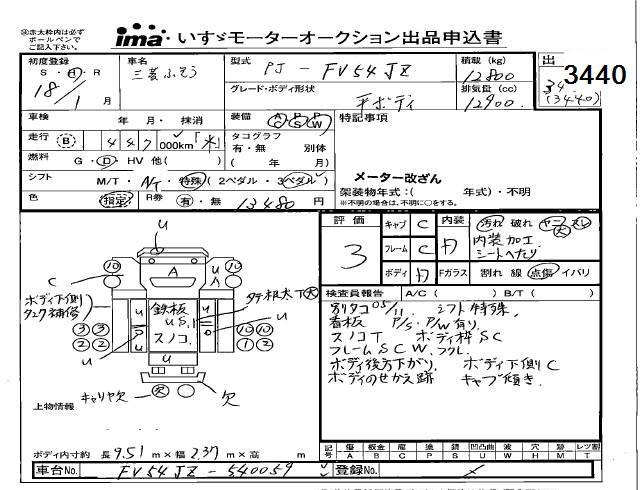 ※赤太枠内は必ず
ボールペンで
ご記入下さい。
ima・いすゞモーターオークション出品申込書
初度登録
S・H・R
18/1月
車名
三菱ふそう
型式
PJ-FV54JZ
積載(kg)
12800
グレード・ボディ形状
平ボディ
排気量(cc)
12900
出
3440
(3440)
車検
年 月・抹消
装備
A/C P/S P/W
特記事項
走行
B
447,000km「米」
タコグラフ
有・無 別体
(年 月)
燃料
G・D・HV 他( )
シフト
M/T・A/T・特殊(2ペダル・3ペダル)
メーター改ざん
架装物年式:( 年式)・不明
※不明の場合は、不明に○をする。
色
指定
R券
有・無
13480円
評価
3
キャブ C
フレーム C
ボディ D
内装 D
汚れ 破れ ヤニ 大 スレ
内装加工
シートへたり
Fガラス 割れ 線 点傷 イバリ
検査員報告 A/C( ) B/T( )
別タコ05/11 シフト特殊
看板 P/S、P/W有り
スノコT ボディ枠SC
フレームSCW、フクレ
ボディ後方下がり、ボディ下側C
ボディのせかえ跡 キャブ傾き
U
C
10
10
A
U
A
ボディ下側
タンク補償
鉄板
US,1
スノコ
U
欠
キャリヤ欠
欠
上物情報
ボディ内寸約 長9.51m×幅2.37m×高 m
記号 傷 板金 腐 塗 錆 凹凸曲 波 穴 跡 レツ割
A B C P S U W H M T
車台No. FV54JZ-540059
登録No.